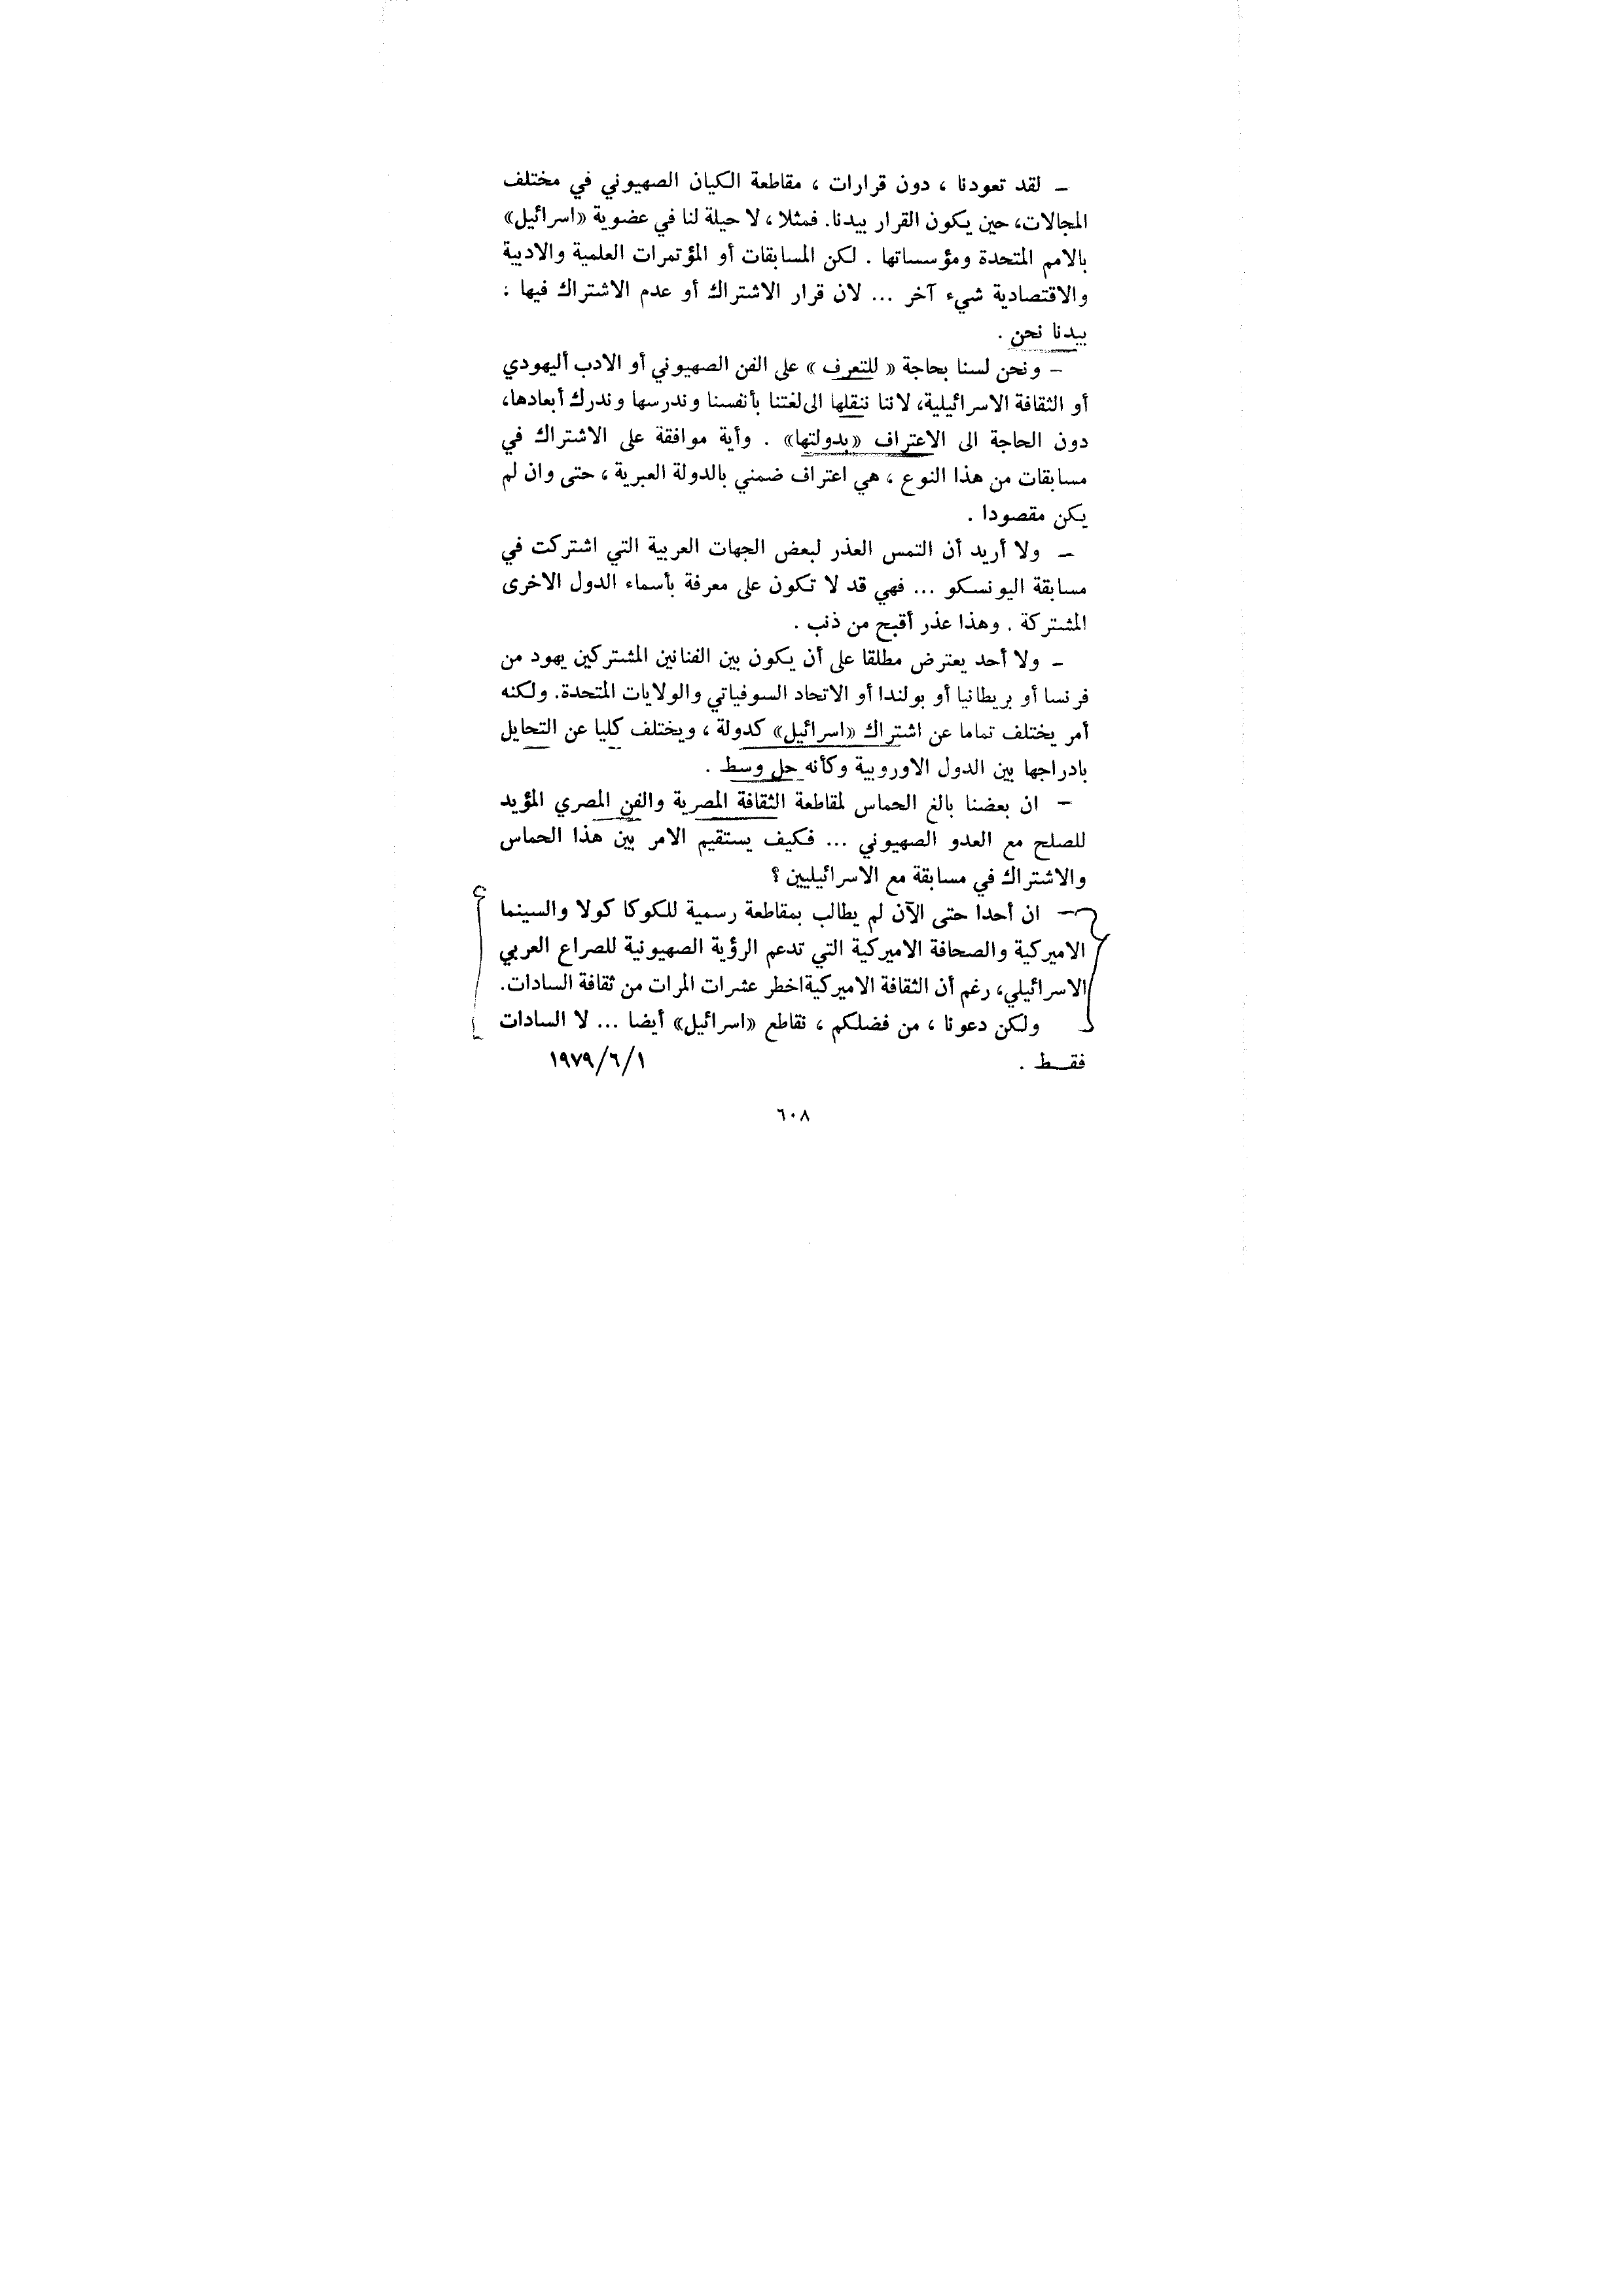 – لقد تعودنا ، دون قرارات ، مقاطعة الكيان الصهيوني في مختلف
المجالات، حين يكون القرار بيدنا. فمثلا ، لا حيلة لنا في عضوية «اسرائيل»
بالامم المتحدة ومؤسساتها . لكن المسابقات أو المؤتمرات العلمية والادبية
والاقتصادية شيء آخر ... لان قرار الاشتراك أو عدم الاشتراك فيها :
بيدنا نحن .
– ونحن لسنا بحاجة « للتعرف » على الفن الصهيوني أو الادب أليهودي
أو الثقافة الاسرائيلية، لاننا ننقلها الى لغتنا بأنفسنا وندرسها وندرك أبعادها،
دون الحاجة الى الاعتراف «بدولتها» . وأية موافقة على الاشتراك في
مسابقات من هذا النوع ، هي اعتراف ضمني بالدولة العبرية ، حتى وان لم
يكن مقصودا .
– ولا أريد أن التمس العذر لبعض الجهات العربية التي اشتركت في
مسابقة اليونسكو ... فهي قد لا تكون على معرفة بأسماء الدول الاخرى
المشتركة . وهذا عذر أقبح من ذنب .
– ولا أحد يعترض مطلقا على أن يكون بين الفنانين المشتركين يهود من
فرنسا أو بريطانيا أو بولندا أو الاتحاد السوفياتي والولايات المتحدة. ولكنه
أمر يختلف تماما عن اشتراك «اسرائيل» كدولة ، ويختلف كليا عن التحايل
بادراجها بين الدول الاوروبية وكأنه حل وسط .
– ان بعضنا بالغ الحماس لمقاطعة الثقافة المصرية والفن المصري المؤيد
للصلح مع العدو الصهيوني ... فكيف يستقيم الامر بين هذا الحماس
والاشتراك في مسابقة مع الاسرائيليين ؟
– ان أحدا حتى الآن لم يطالب بمقاطعة رسمية للكوكا كولا والسينما
الاميركية والصحافة الاميركية التي تدعم الرؤية الصهيونية للصراع العربي
الاسرائيلي، رغم أن الثقافة الاميركية اخطر عشرات المرات من ثقافة السادات.
ولكن دعونا ، من فضلكم ، نقاطع «اسرائيل» أيضا ... لا السادات
فقـط . ١٩٧٩/٦/١
٦٠٨